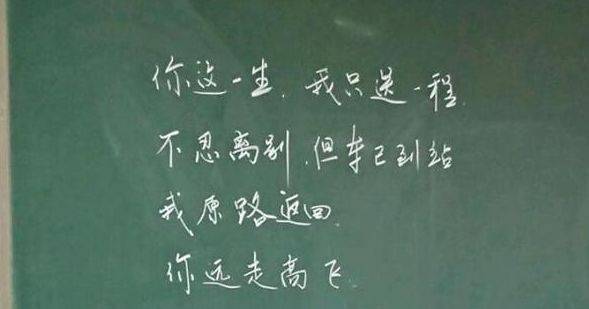 你这一生，我只送一程.
不忍离别，但车已到站
我原路返回.
你远走高飞.